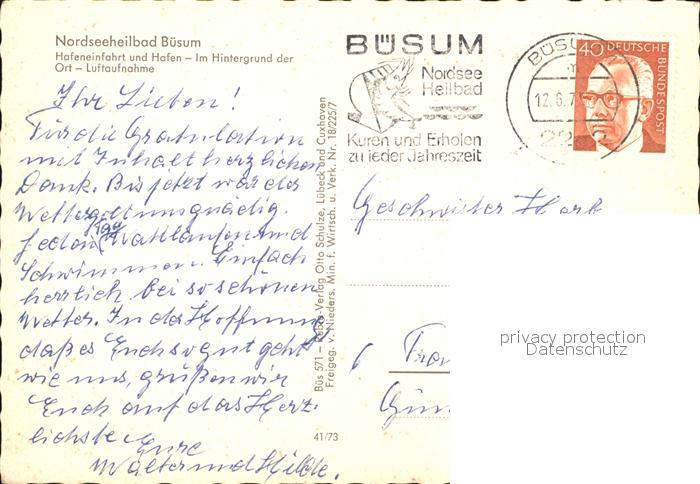 Nordseeheilbad Büsum
Hafeneinfahrt und Hafen – Im Hintergrund der
Ort – Luftaufnahme
Ihr Lieben!
Für die Gratulation
mit Inhalt herzlichen
Dank. Bis jetzt war der
Wettergott uns gnädig.
Jeden Tag Wattlaufen und
Schwimmen. Einfach
herrlich bei so schönen
Wetter. In der Hoffnung
daß es Euch so gut geht
wie uns, grüßen wir
Euch auf das Herz-
lichste Eure
Walter und Hilde.
Büs 571 – Verlag Otto Schulze, Lübeck und Cuxhaven
Freigeg. v. Nieders. Min. f. Wirtsch. u. Verk. Nr. 18/225/7
41/73
BÜSUM
Nordsee
Heilbad
Kuren und Erholen
zu jeder Jahreszeit
BÜSUM
12.6.7
40 DEUTSCHE
BUNDESPOST
Geschwister
6
privacy protection
Datenschutz